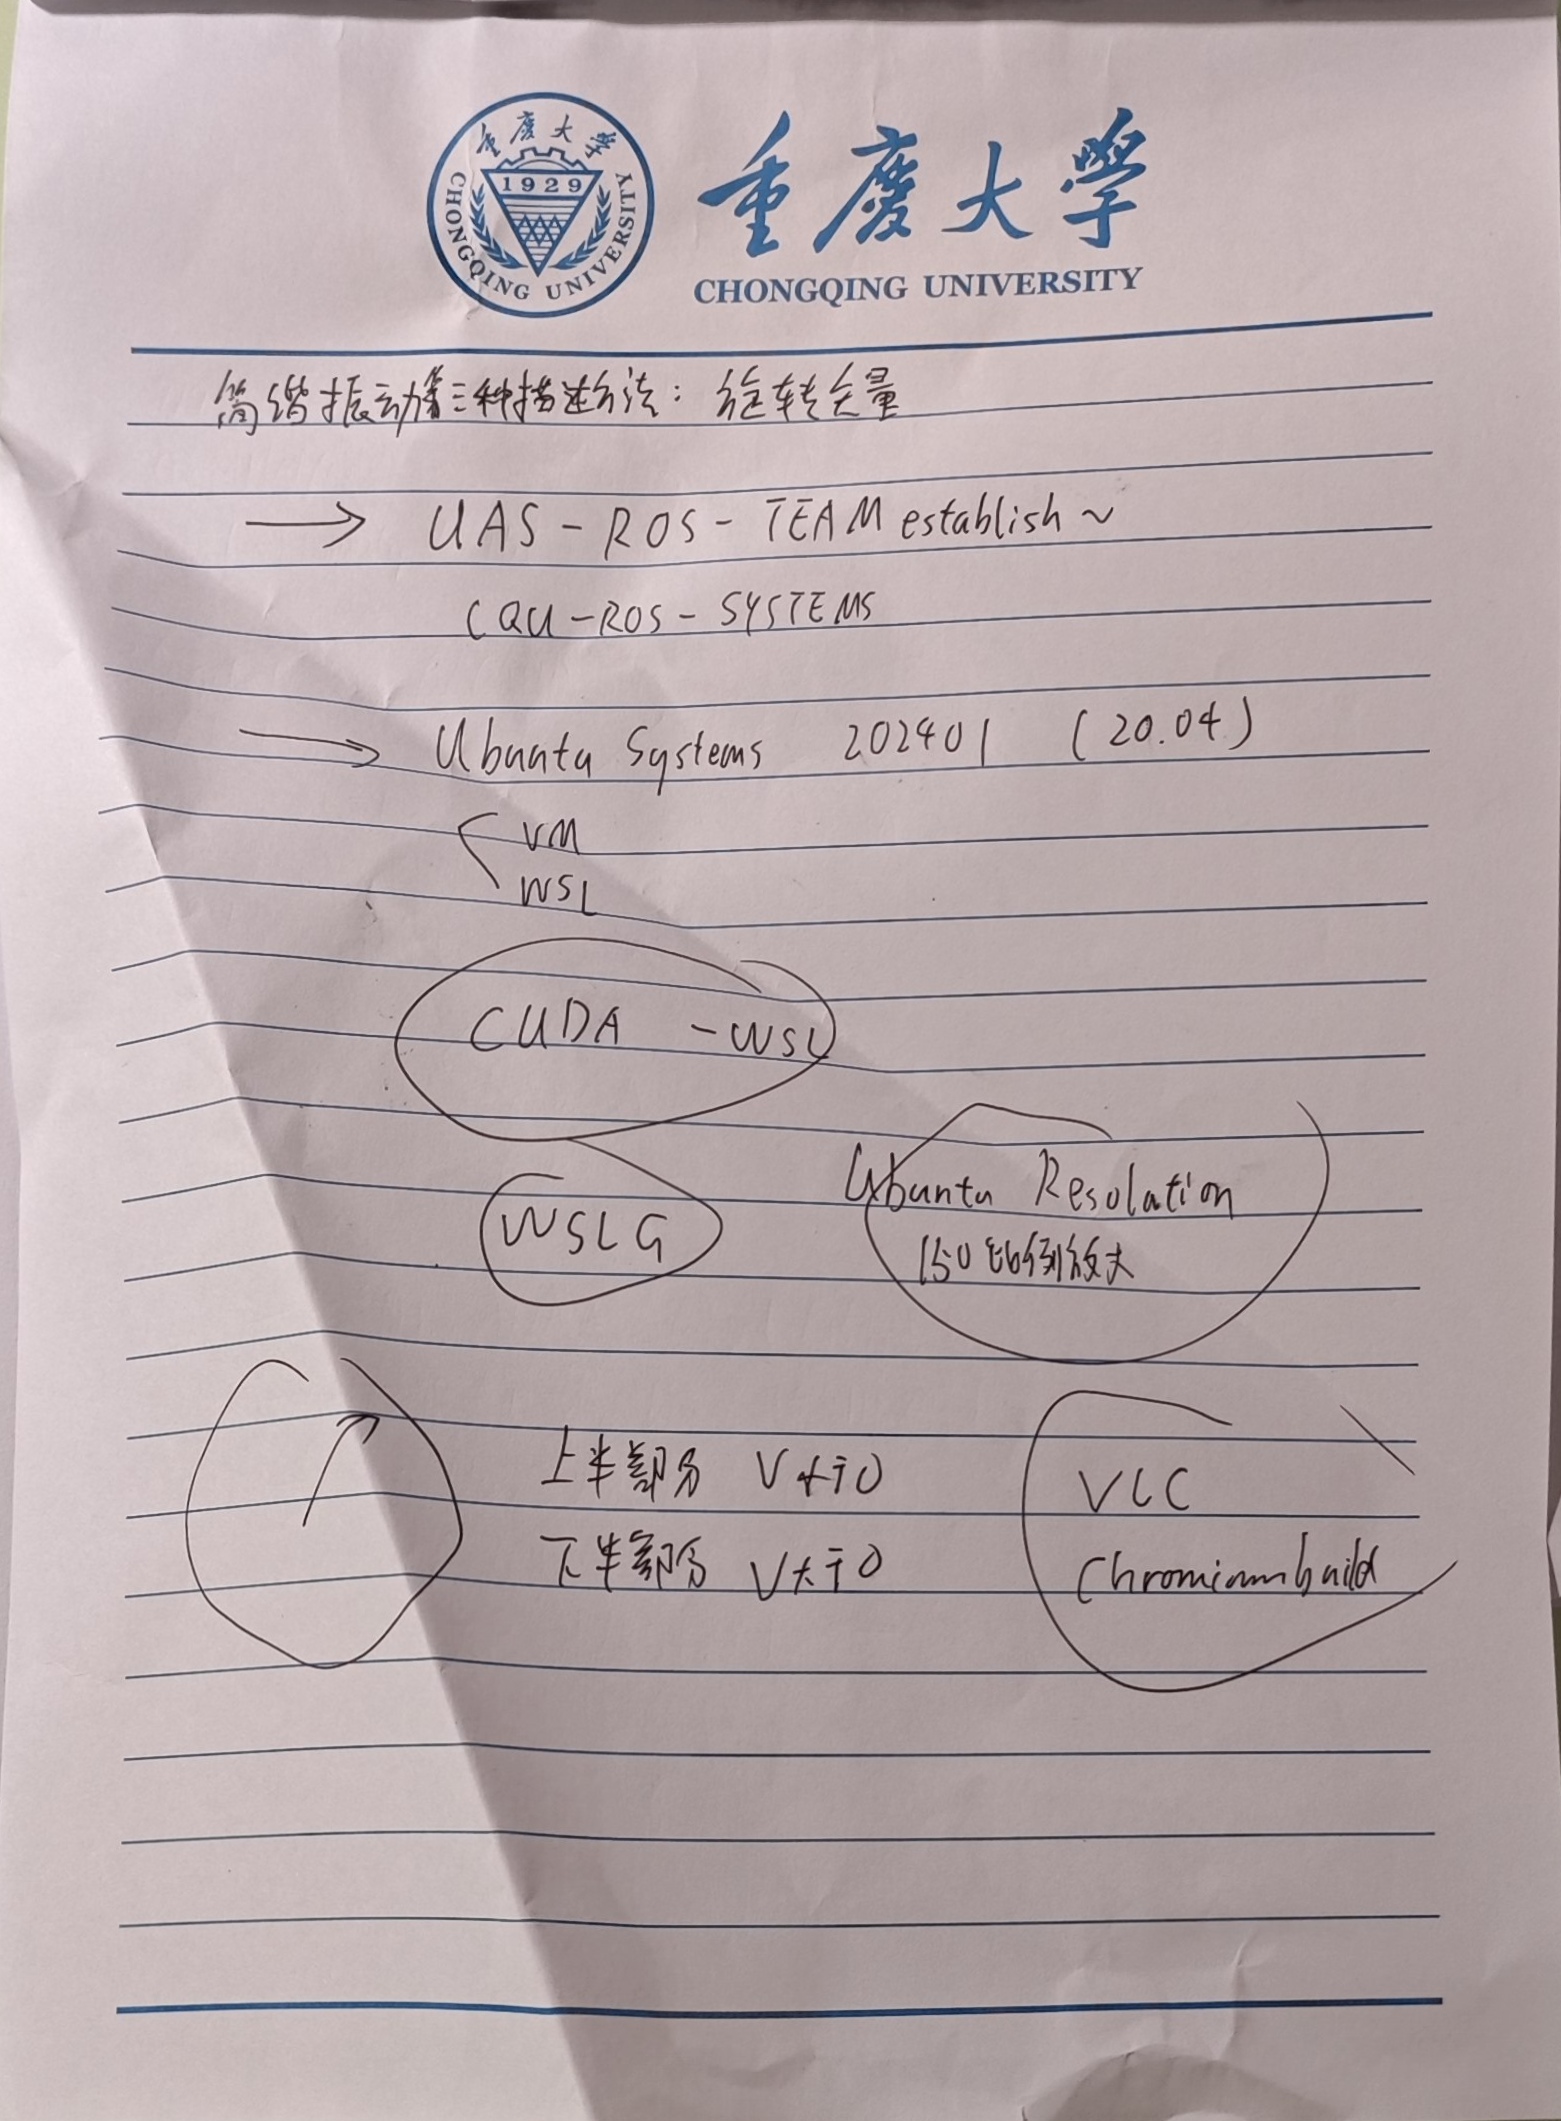 重庆大学
CHONGQING UNIVERSITY
1929
重慶大學
CHONGQING UNIVERSITY
简谐振动第三种描述方法：旋转矢量
→ UAS-ROS-TEAM establish~
CQU-ROS-SYSTEMS
→ Ubuntu Systems 202401 (20.04)
VM
WSL
CUDA -WSL
WSLG
Ubuntu Resolation
150比例放大
上半部分 V小于0
下半部分 V大于0
VLC
Chromiumbuild